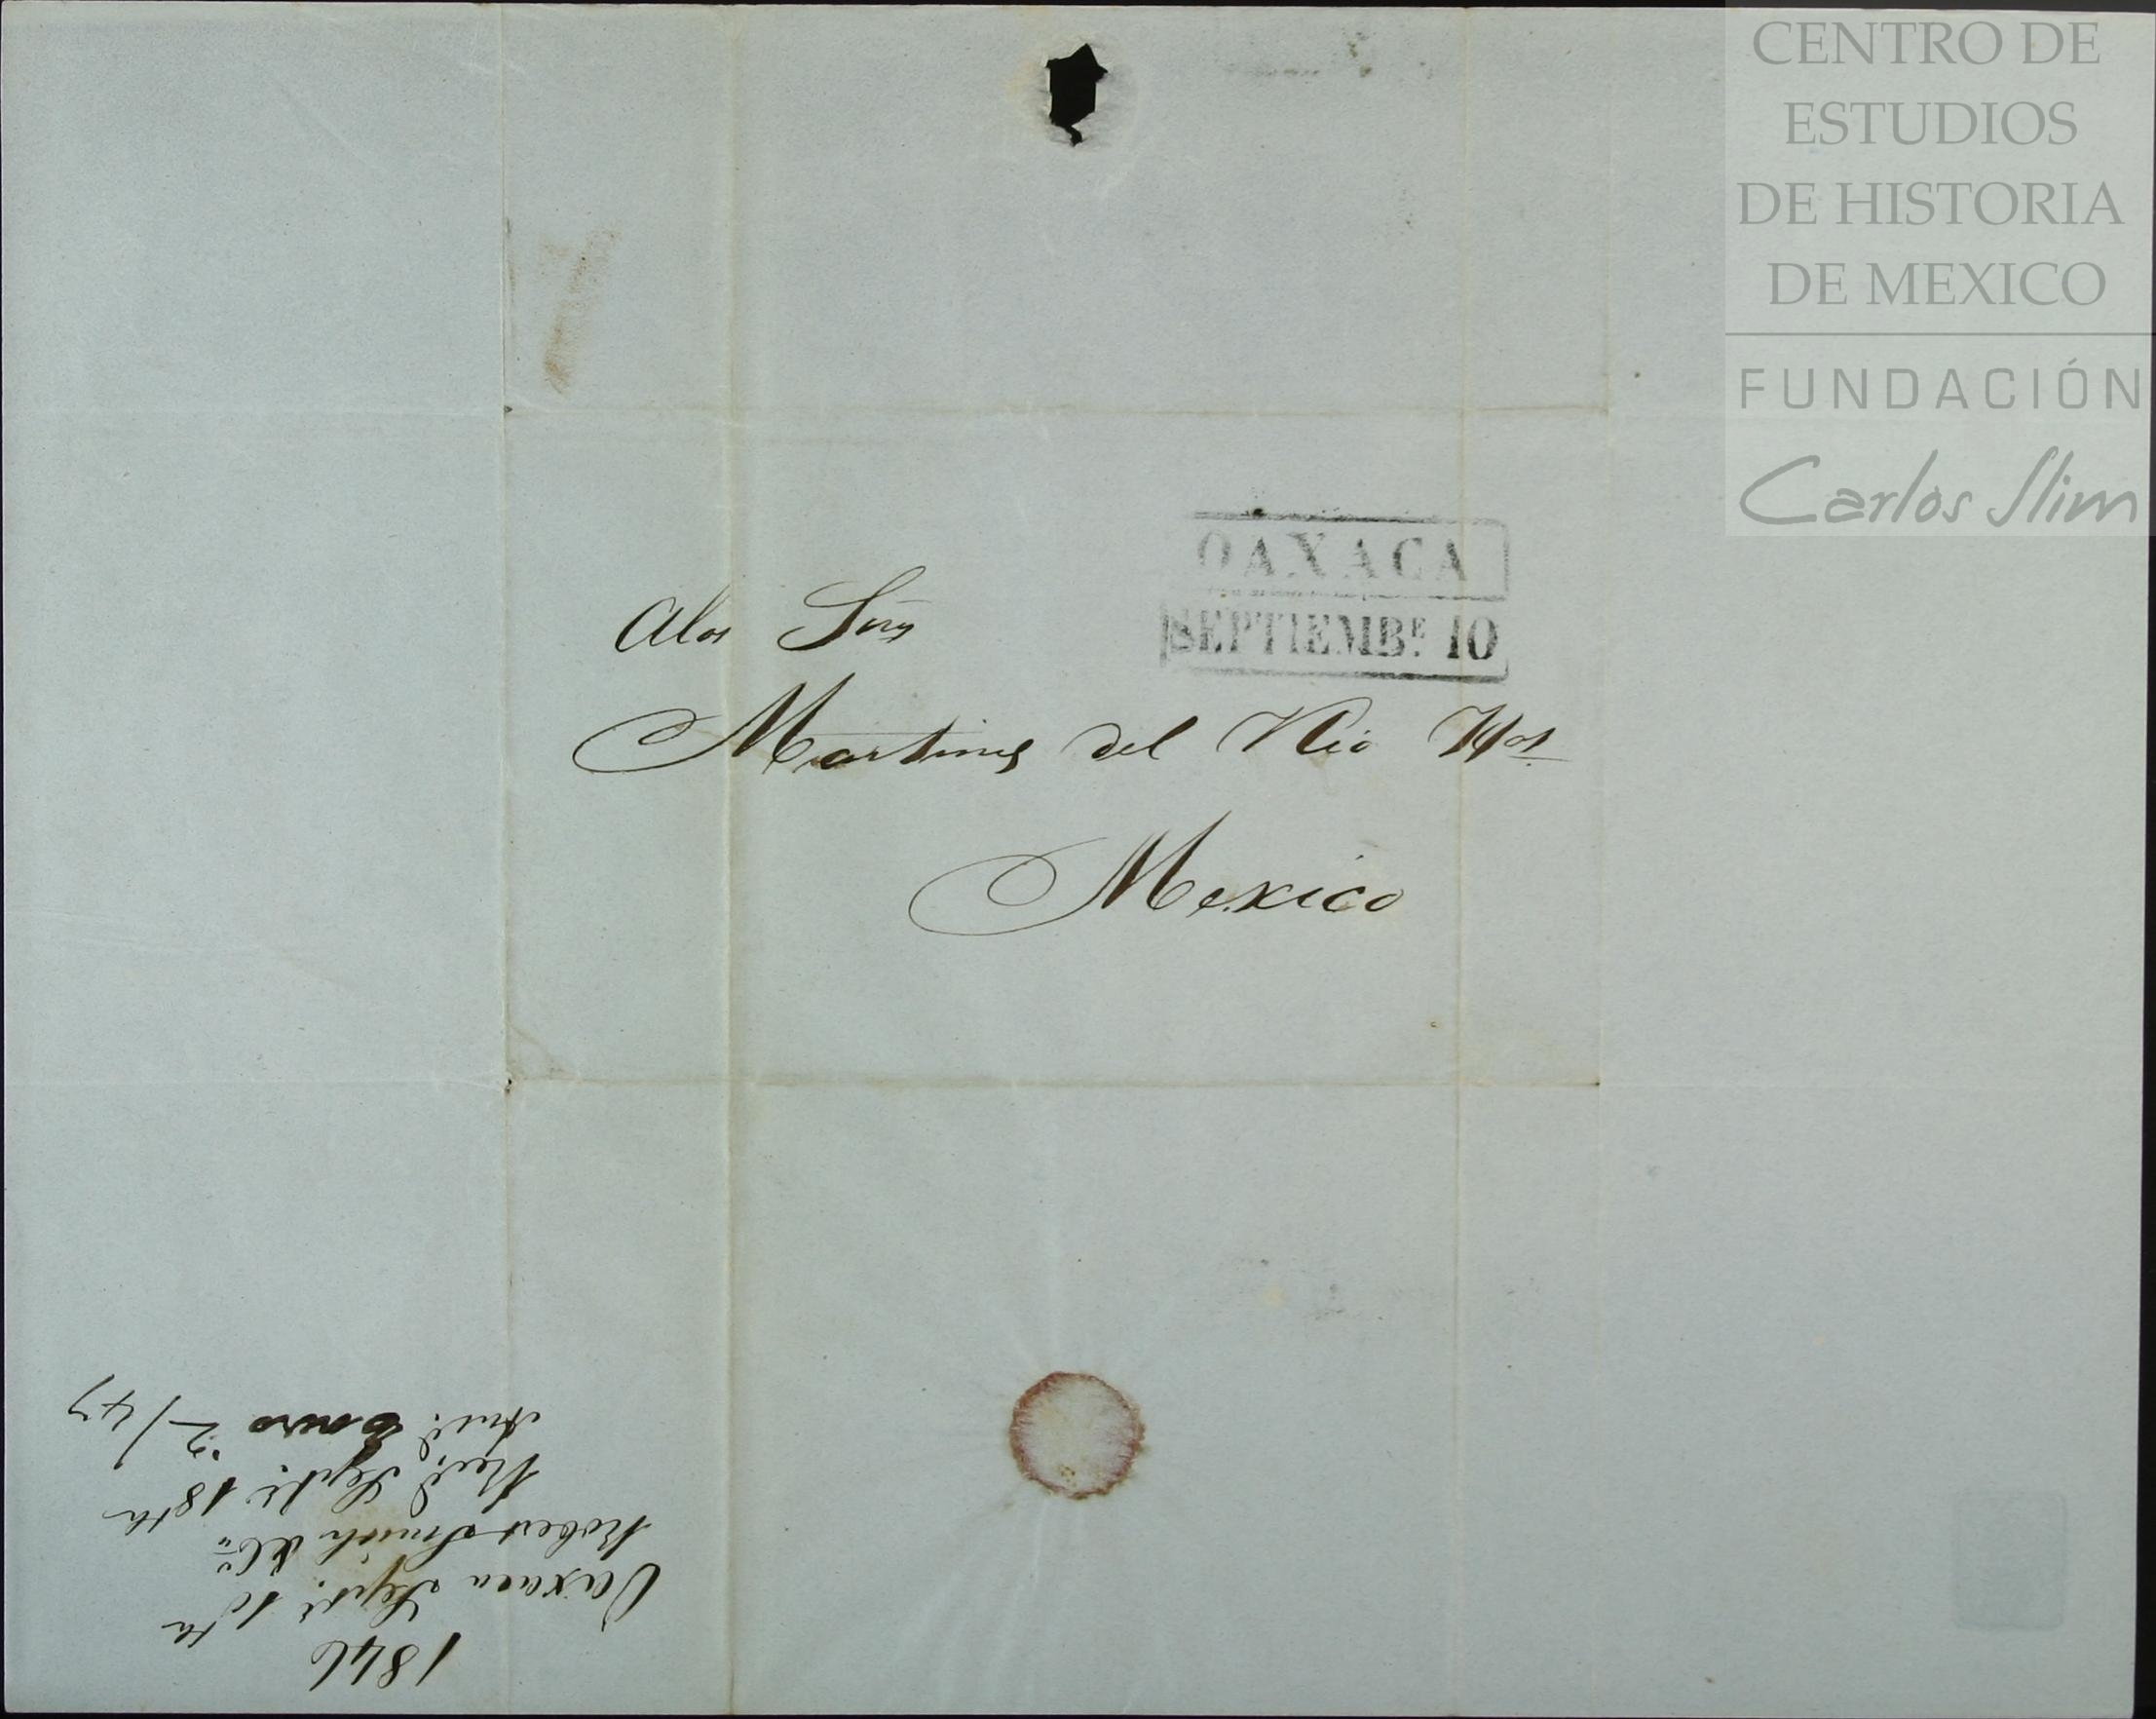 CENTRO DE
ESTUDIOS
DE HISTORIA
DE MEXICO
FUNDACIÓN
Carlos Slim
OAXACA
SEPTIEMBE. 10
Alos Sres
Martinez del Rio Hos
Mexico
1846
Oaxaca Sept. 10th
Robert Smith & Co
Recd. Sept. 18th
Enero 2/47